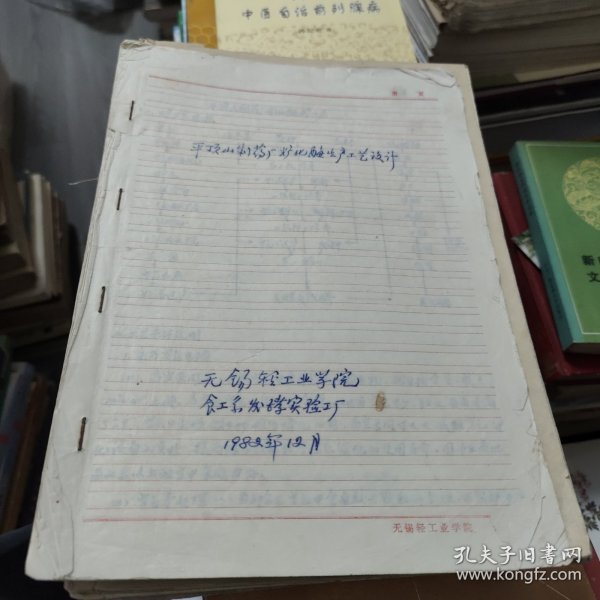 中医自治前列腺病
平顶山制药厂扩化酶生产工艺设计
无锡轻工业学院
食工系发酵实验工厂
1982年12月
无锡轻工业学院
孔夫子旧书网
www.kongfz.com